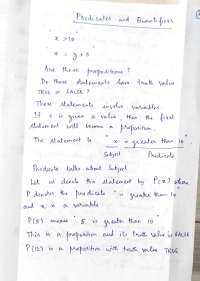 Predicates and Quantifiers
" x > 10 "
" x = y + 5 "
Are these propositions ?
Do these statements have truth value
TRUE or FALSE ?
These statements involve variables
If x is given a value, then the first
statement will become a proposition.
The statement is " x is greater than 10 "
Subject Predicate
Predicate talks about Subject
Let us denote this statement by P(x) where
P denotes the predicate " is greater than 10 "
and x is a variable
P(5) means " 5 is greater than 10 "
This is a proposition and its truth value is FALSE
P(12) is a proposition with truth value TRUE